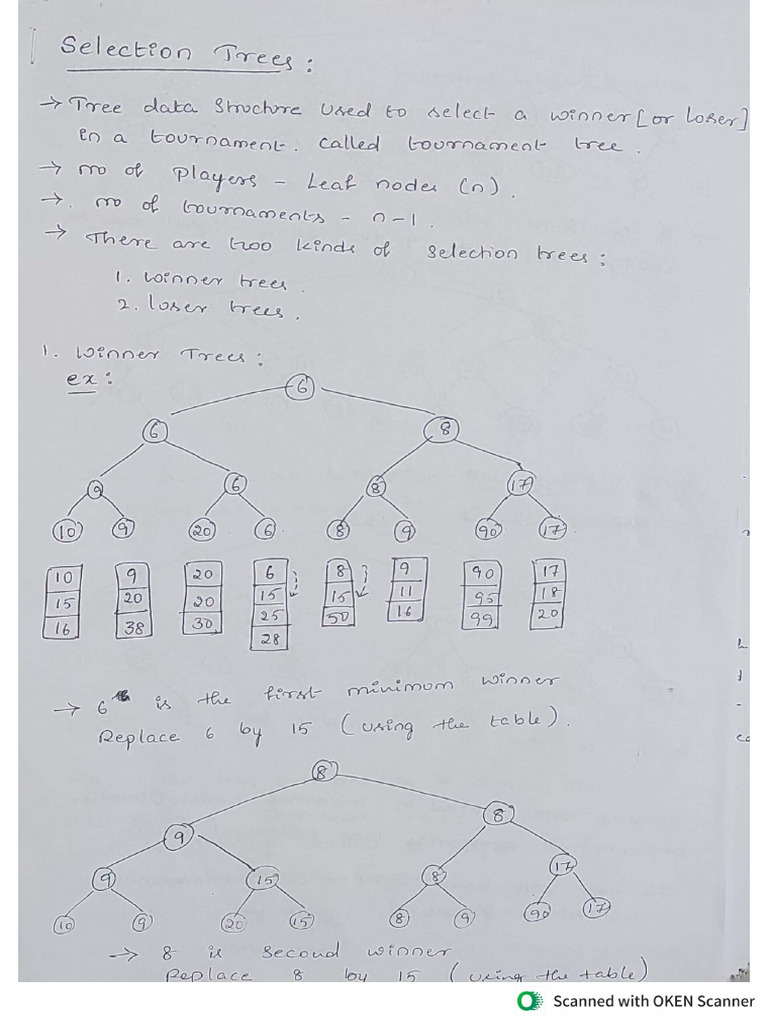 Selection Trees:
→ Tree data structure used to select a winner [or loser]
in a tournament. called tournament tree.
→ no of players - Leaf nodes (n).
→. no of tournaments - n-1.
→ There are two kinds of selection trees:
1. winner trees.
2. loser trees.
1. Winner Trees:
ex:
6
6 8
9 6 8 17
10 9 20 6 8 9 90 17
10 9 20 6 8 9 90 17
15 20 20 15 15 11 95 18
16 38 30 25 50 16 99 20
28
→ 6 is the first minimum winner
Replace 6 by 15 (using the table).
8
9 8
9 15 8 17
10 9 20 15 8 9 90 17
→ 8 is second winner
Replace 8 by 15 (using the table)
Scanned with OKEN Scanner